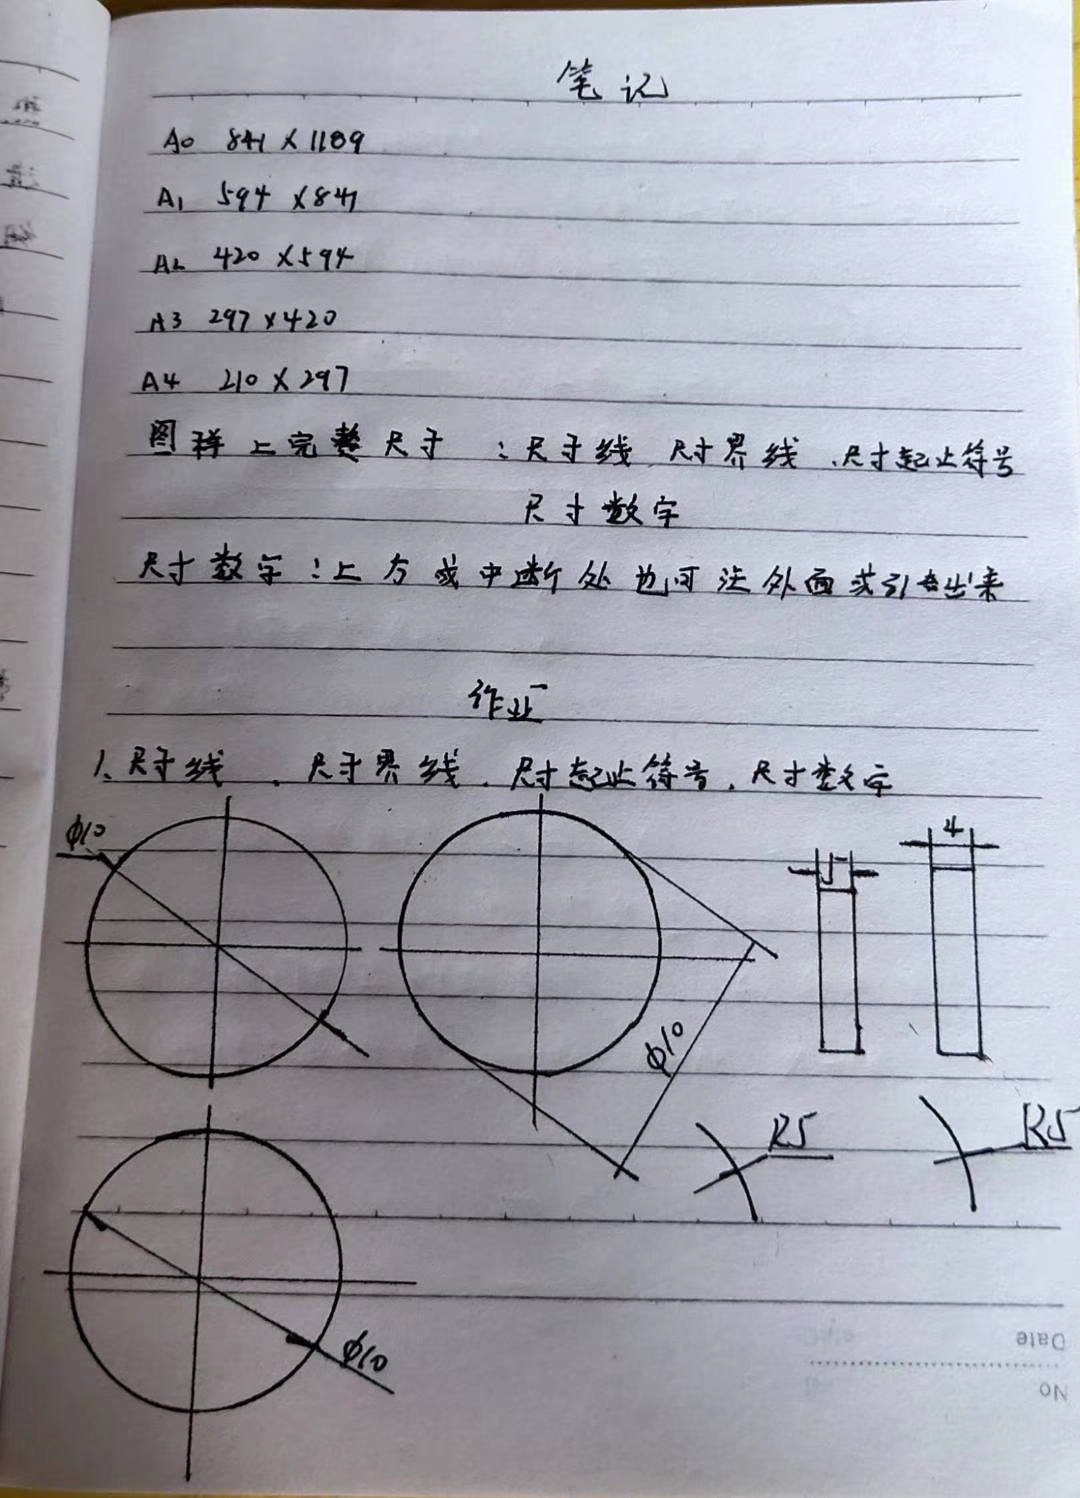 笔记
A0 841×1189
A1 594×841
A2 420×594
A3 297×420
A4 210×297
图样上完整尺寸:尺寸线、尺寸界线、尺寸起止符号
尺寸数字
尺寸数字:上方或中断处也可注外面或引出来
作业
1、尺寸线、尺寸界线、尺寸起止符号、尺寸数字
φ10
φ10
5
4
R5
R5
φ10
Date
No